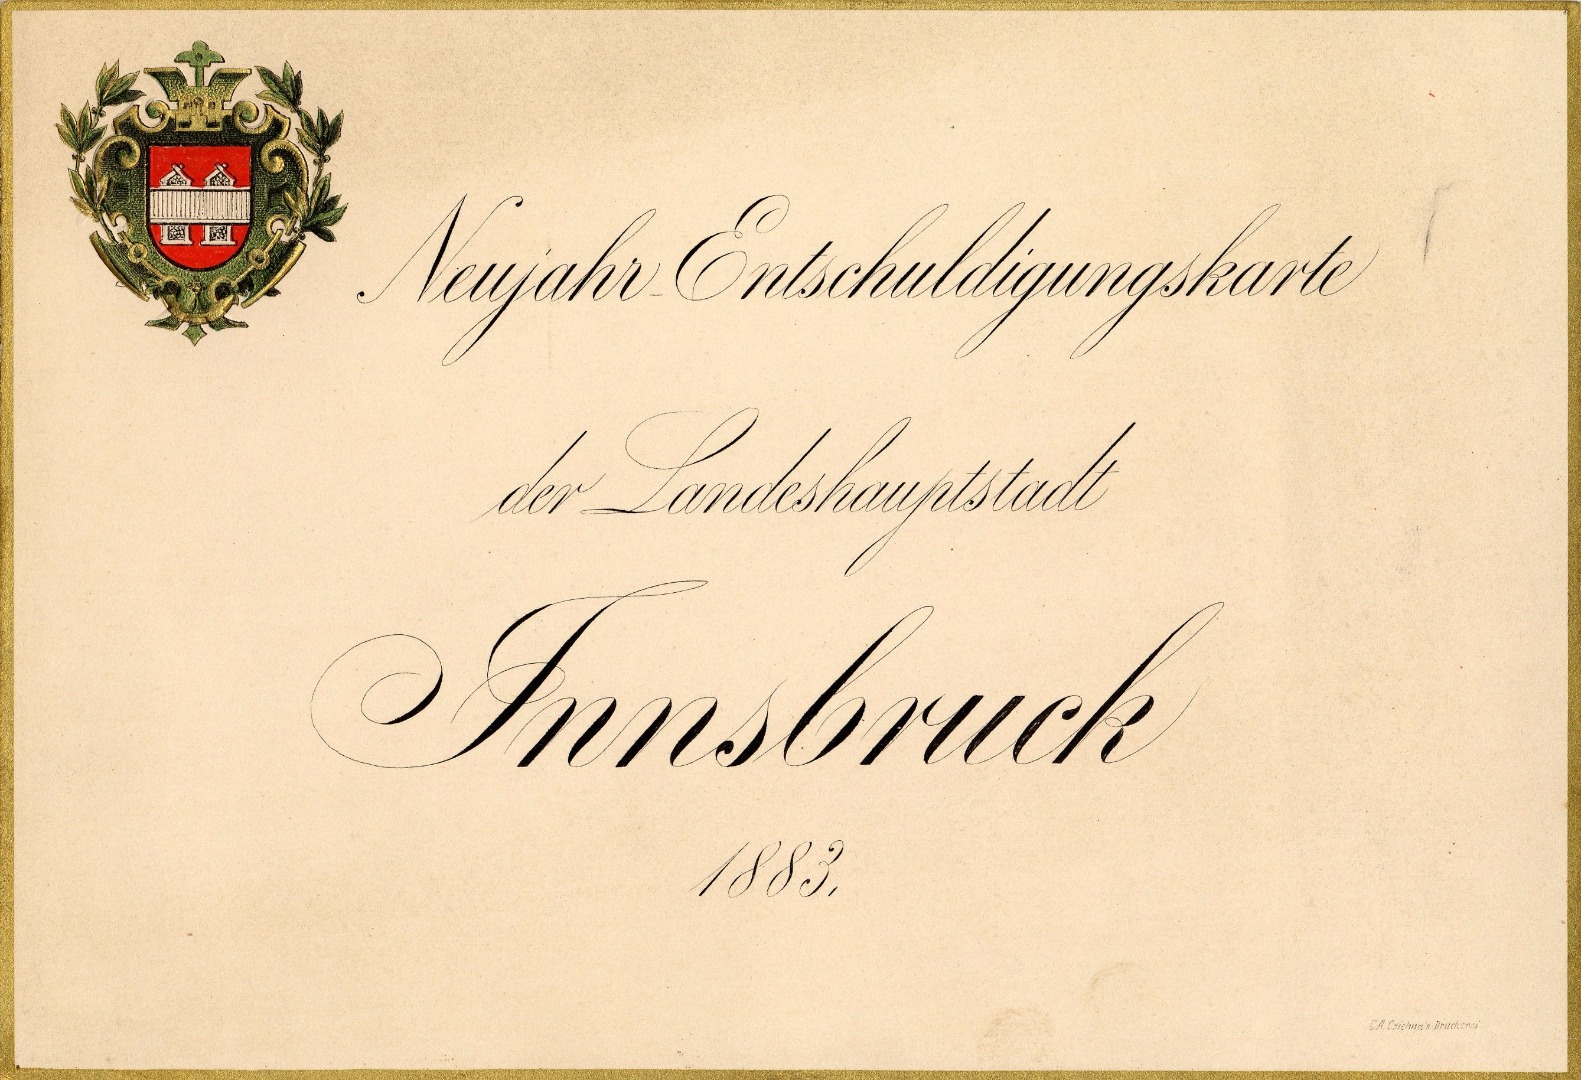 Neujahr-Entschuldigungskarte
der Landeshauptstadt
Innsbruck
1883.
C.A. Czichna's Druckerei